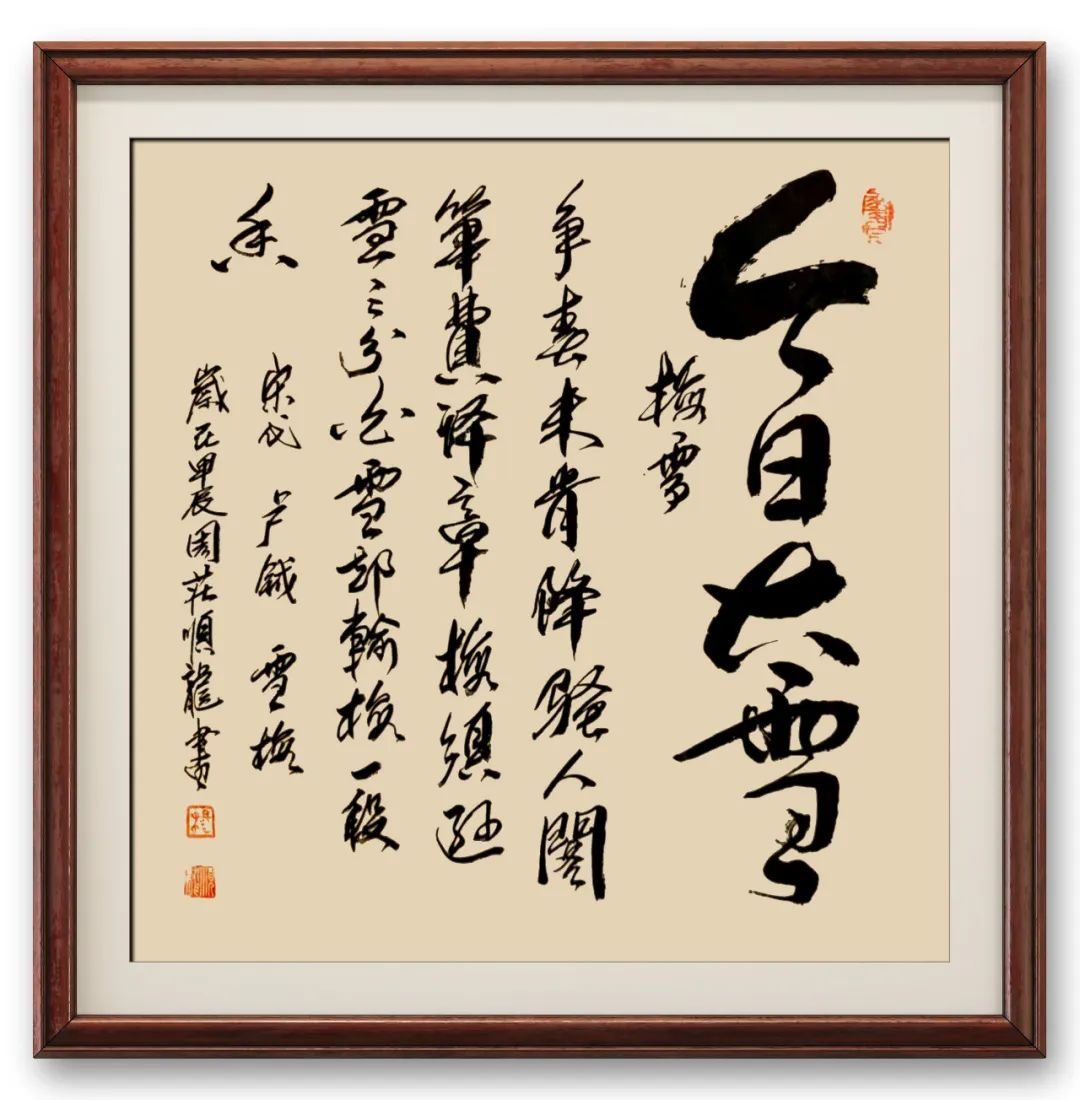 今日大雪
梅雪
争春未肯降騷人閣
筆費評章梅須遜
雪三分白雪却輸梅一段
香
宋代 卢鉞 雪梅
歲在甲辰周莊順龍書